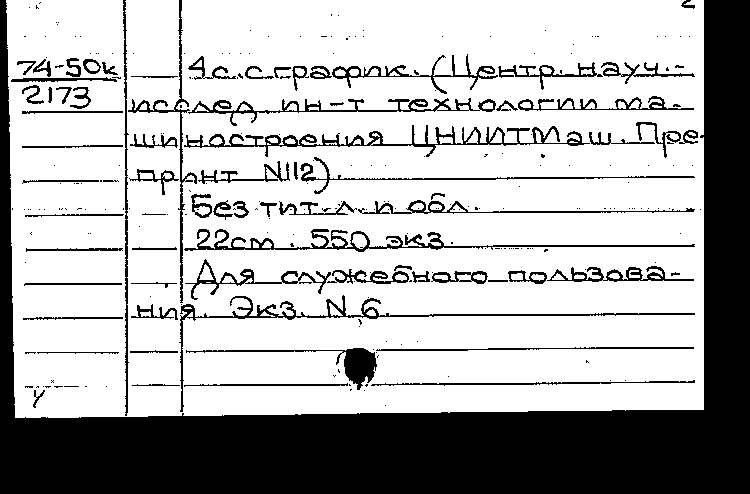 2
74-50к
2173
4 с. с график. (Центр. науч.-
исслед. ин-т технологии ма-
шиностроения ЦНИИТМаш. Пре-
принт N112).
Без тит. л. и обл.
22см. 550 экз.
Для служебного пользова-
ния. Экз. N 6.
У